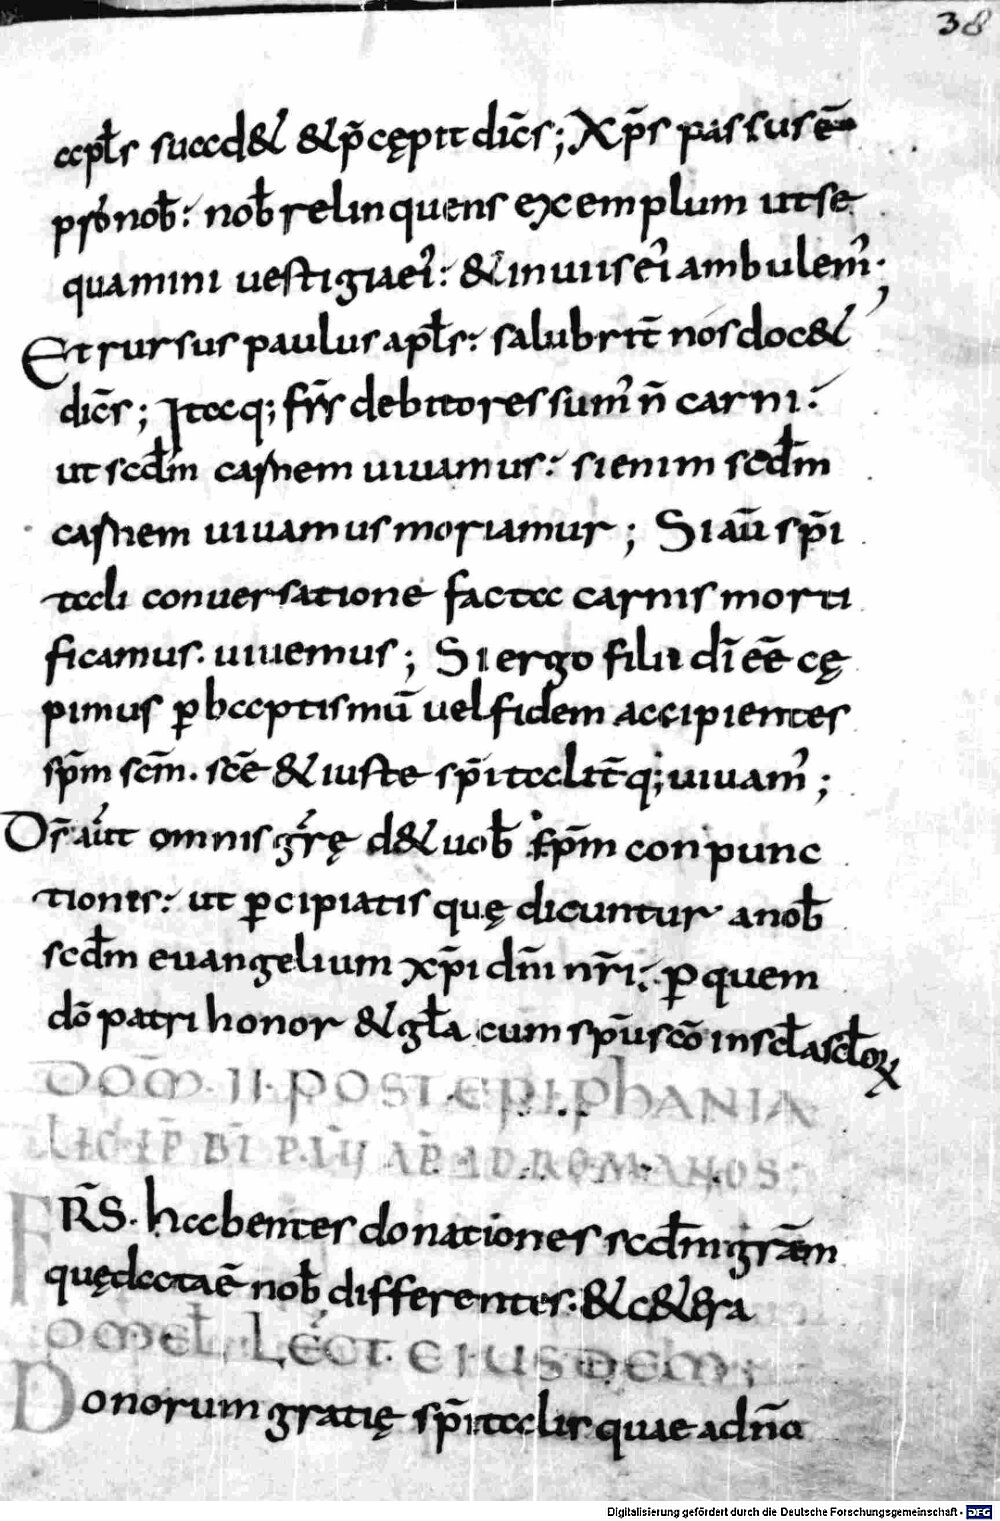 38
apłs suad& & p̄cępit dic̄s; Xp̄s passus ē
pro nob̄: nob̄ relinquens exemplum ut se
quamini uestigia ei': & in uiis ei' ambulem';
Et rursus paulus apłs: salubrit̄ nos doc&
dic̄s; Itaq; fr̄s debitores sum' n̄ carni:
ut scd̄m carnem uiuamus: si enim scd̄m
carnem uiuamus moriamur; Si aū sp̄i
tali conuersatione facta carnis morti
ficamus. uiuemus; Si ergo filii dī eē cę
pimus p̱ baptismū uel fidem accipientes
sp̄m scm̄. scē & iuste sp̄italit̄q; uiuam';
Dr̄ aut omnis gr̄ę d& uob̄ sp̄m conpunc
tionis: ut p̱cipiatis quę dicuntur a nob̄
scd̄m euangelium xp̄i dn̄i nr̄i: p̱ quem
dō patri honor & gła cum sp̄u scō in scła scłoꝝ
DOM̄. II. POST EPIPHANIA
LEC EP̄ BĪ PAULI AP̄ AD ROMANOS:
FR̄S. habentes donationes scd̄m gr̄am
quę data ē nob̄ differentes. & c&era
OMEŁ. LECT EIUSDEM;
Donorum gratię sp̄italis quae ad n̄a
Digitalisierung gefördert durch die Deutsche Forschungsgemeinschaft - DFG